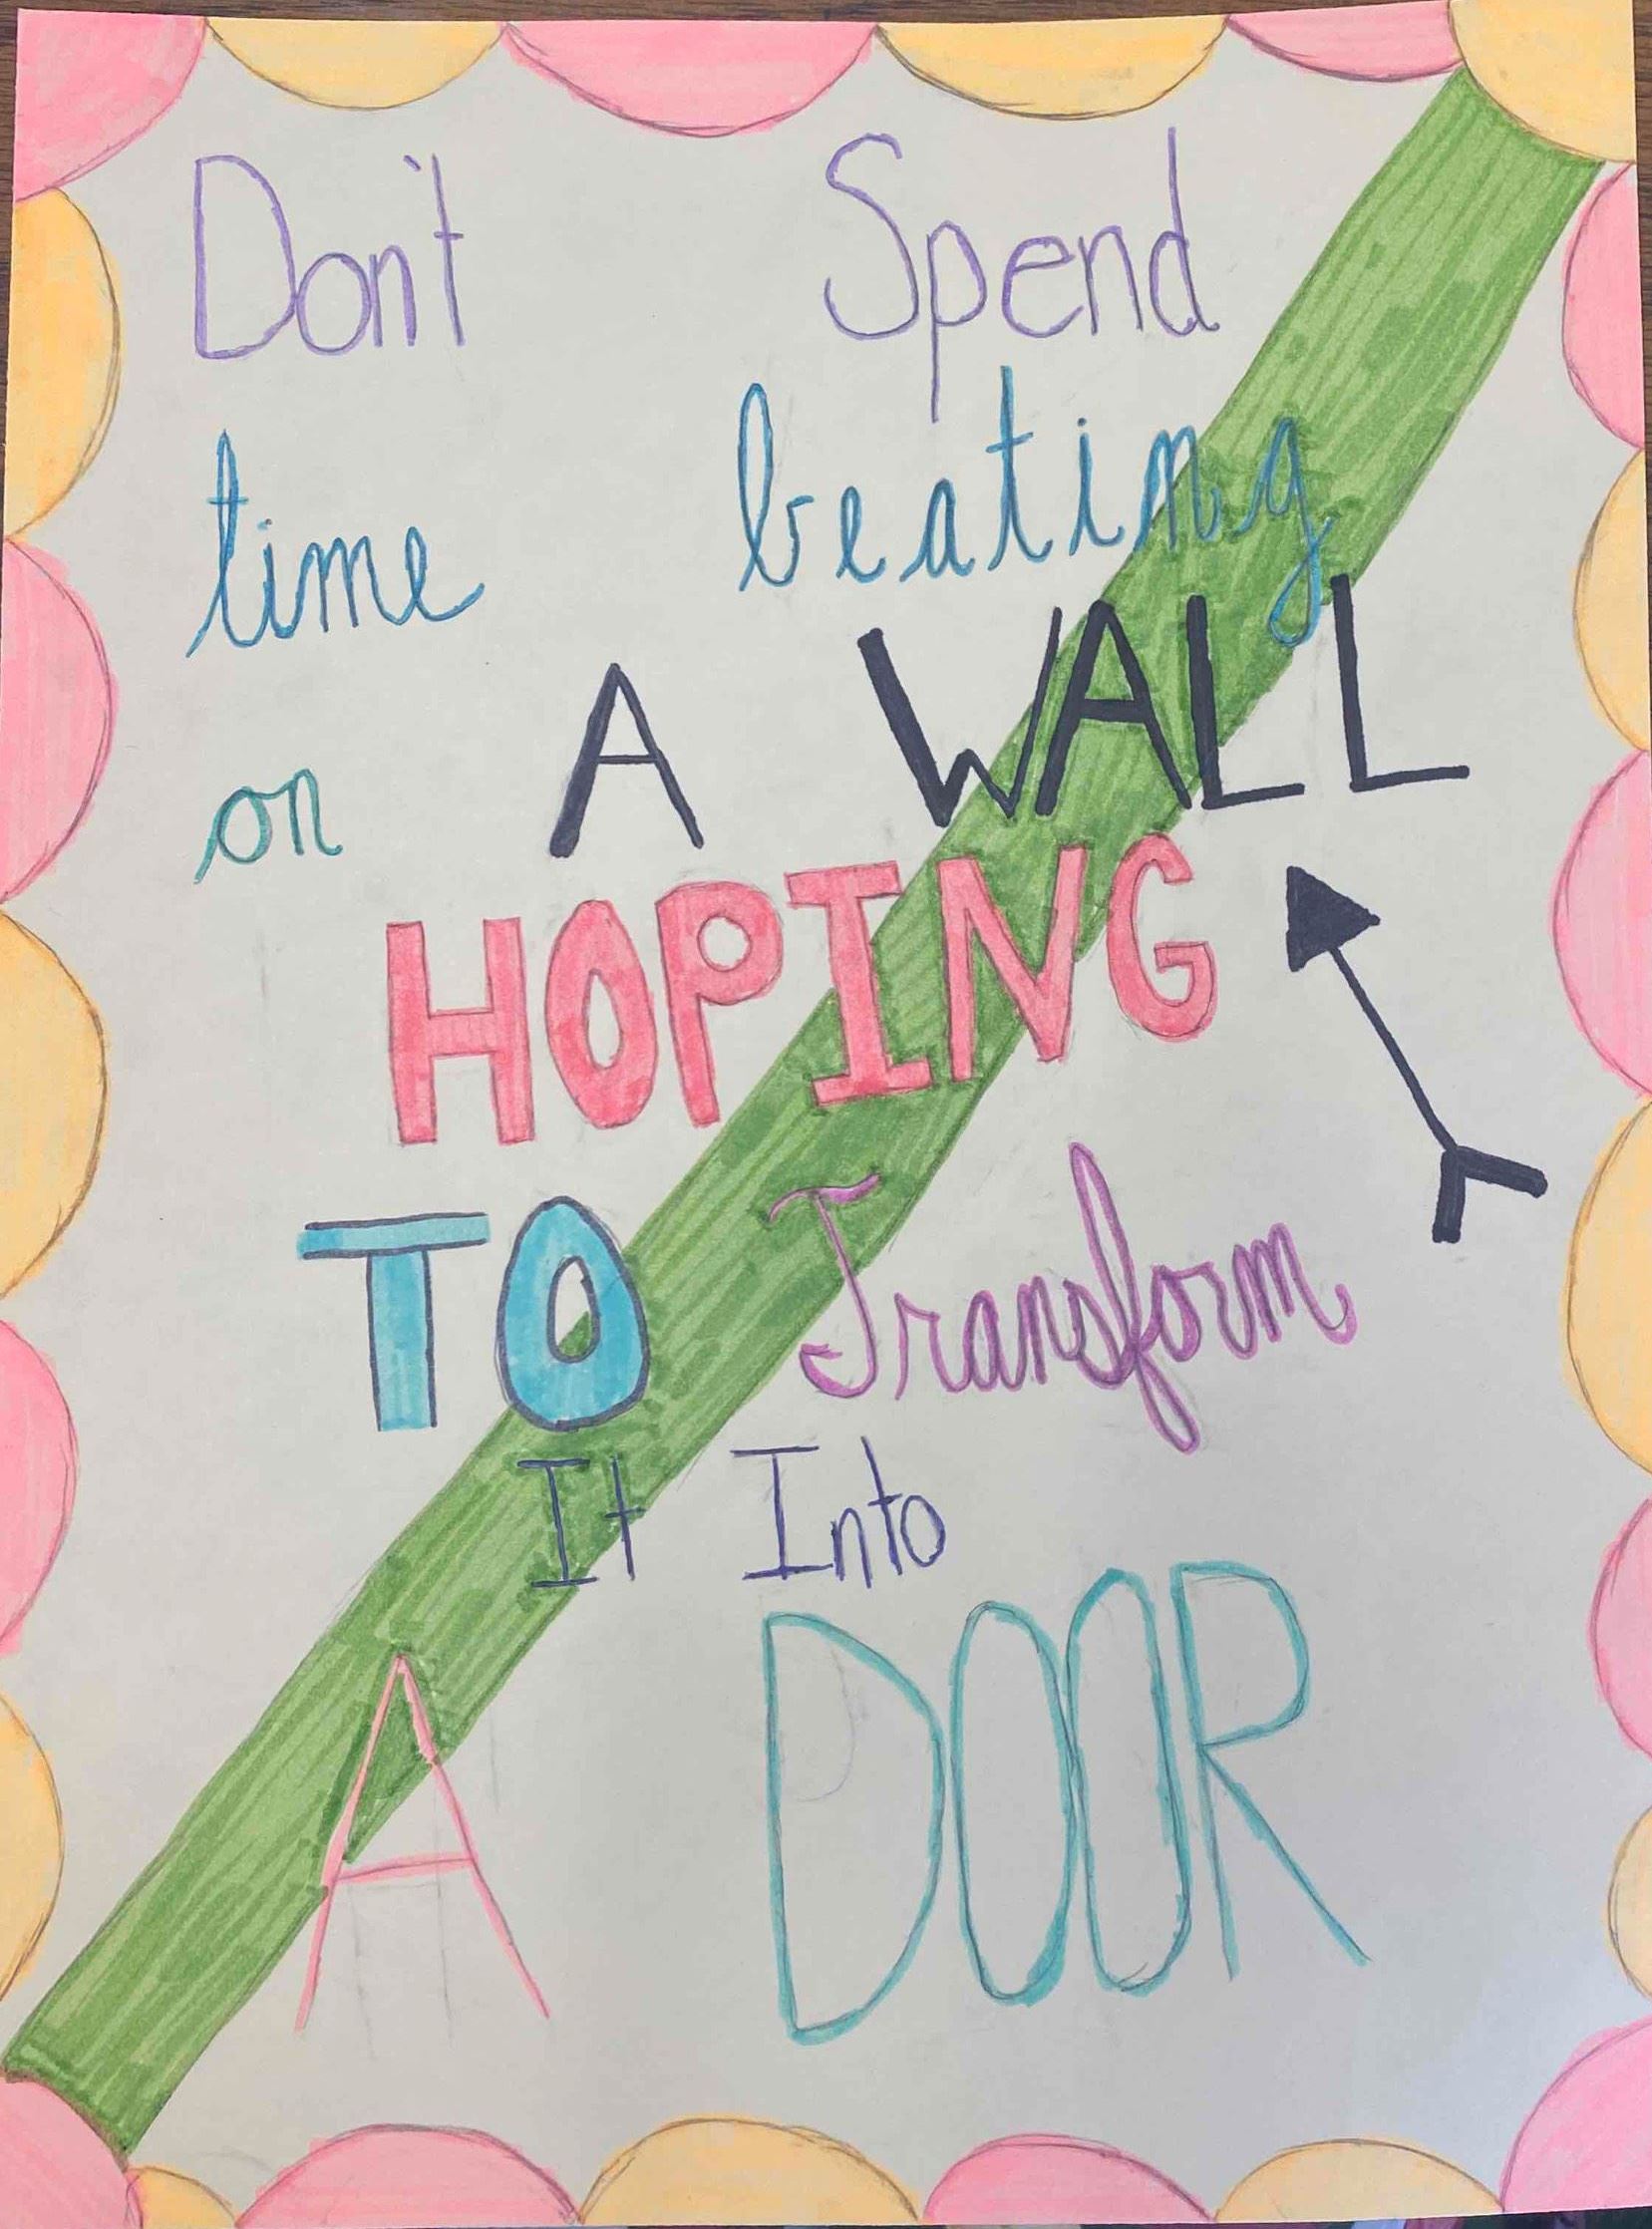 Don't Spend
time beating
on A WALL
HOPING
TO Transform
It Into
A DOOR